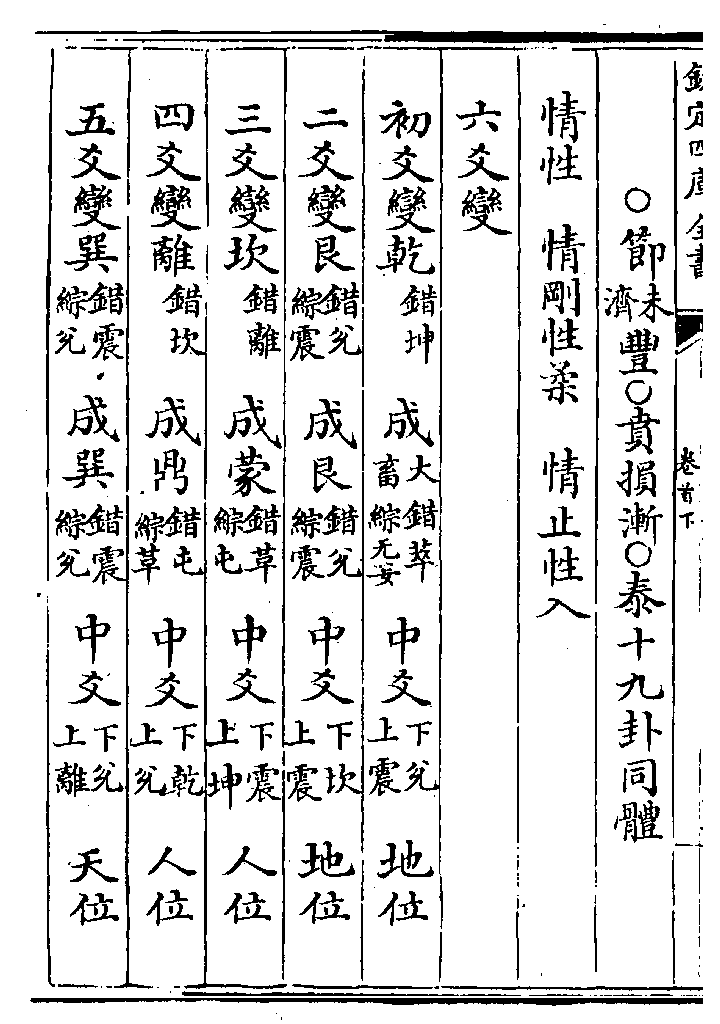 欽定四庫全書　卷首下
○節未濟豐○賁損漸○泰十九卦同體
情性　情剛性柔　情止性入
六爻變
初爻變乾錯坤　成大畜錯萃綜无妄　中爻下兊上震　地位
二爻變艮錯兊綜震　成艮錯兊綜震　中爻下坎上震　地位
三爻變坎錯離　成蒙錯革綜屯　中爻下震上坤　人位
四爻變離錯坎　成鼎錯屯綜革　中爻下乾上兊　人位
五爻變巽錯震綜兊　成巽錯震綜兊　中爻下兊上離　天位